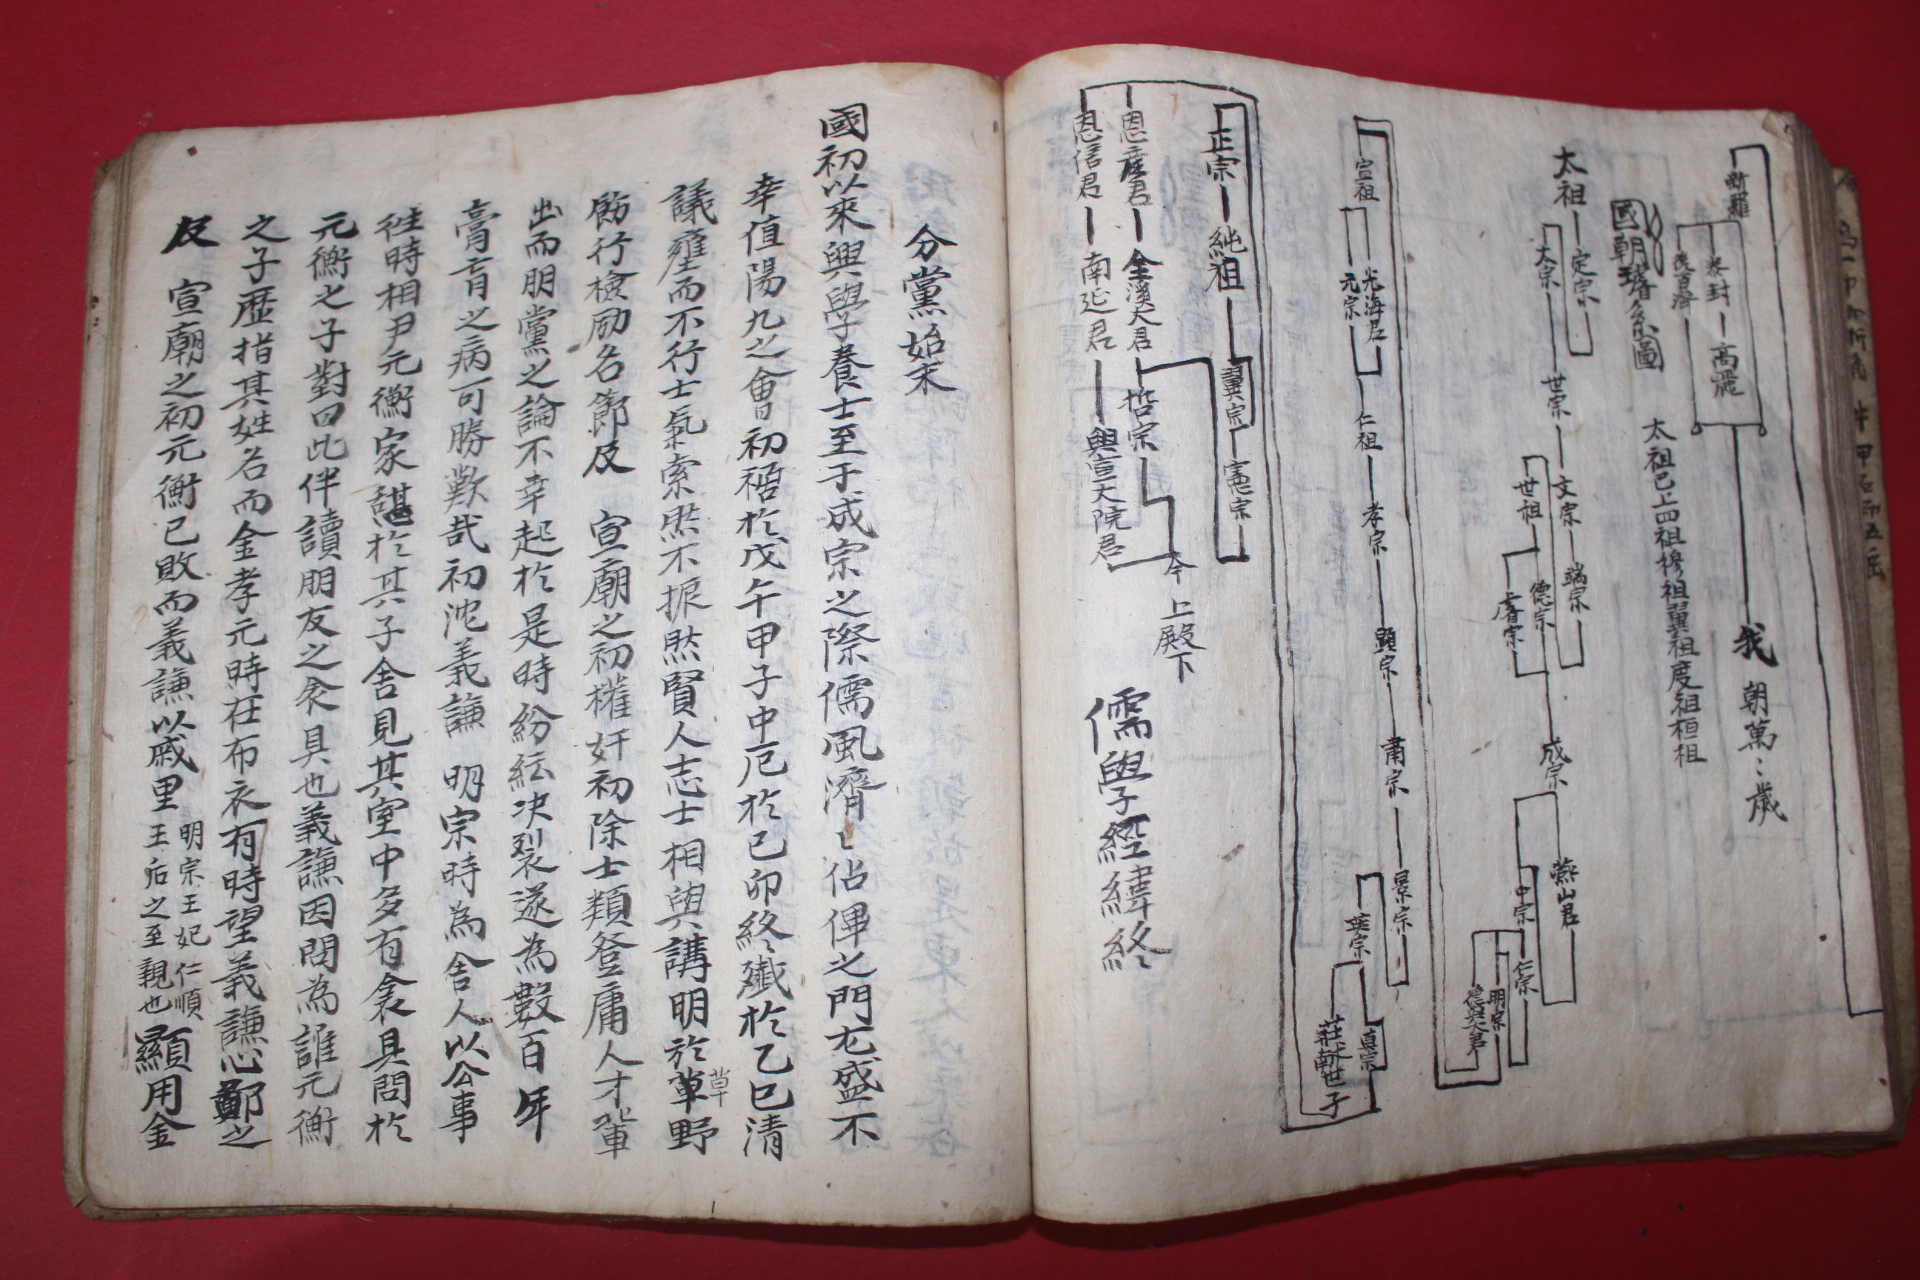 新羅
泰封 高麗
後百濟
我 朝萬〻歲
國朝璿系圖
太祖已上四祖穆祖翼祖度祖桓祖
太祖 定宗
太宗 世宗 文宗 端宗
世祖 德宗
睿宗 成宗 燕山君
中宗 仁宗
明宗
德興大
宣祖 光海君
元宗 仁祖 孝宗 顯宗 肅宗 景宗
英宗 真宗
莊献世子
正宗 純祖 翼宗 憲宗
恩彦君 全溪大君 哲宗
恩信君 南延君 興宣大院君
今 上殿下
儒學經緯終
分黨始末
國初以來興學養士至于成宗之際儒風濟〻佔俾之門尤盛不
幸值陽九之會初禍於戊午甲子中厄於己卯終殲於乙巳清
議壅而不行士氣索然不振然賢人志士相與講明於草野
草
飭行檢励名節及 宣廟之初權奸初除士類登庸人才輩
出而朋黨之論不幸起於是時紛紜决裂遂為數百年
膏肓之病可勝歎哉初沈義謙 明宗時為舍人以公事
徃時相尹元衡家諶於其子舍見其室中多有衾具問於
元衡之子對曰此伴讀朋友之衾具也義謙因問為誰元衡
之子歷指其姓名而金孝元時在布衣有時望義謙心鄙之
及 宣廟之初元衡已敗而義謙以戚里 明宗王妃仁順王后之至親也 顯用金